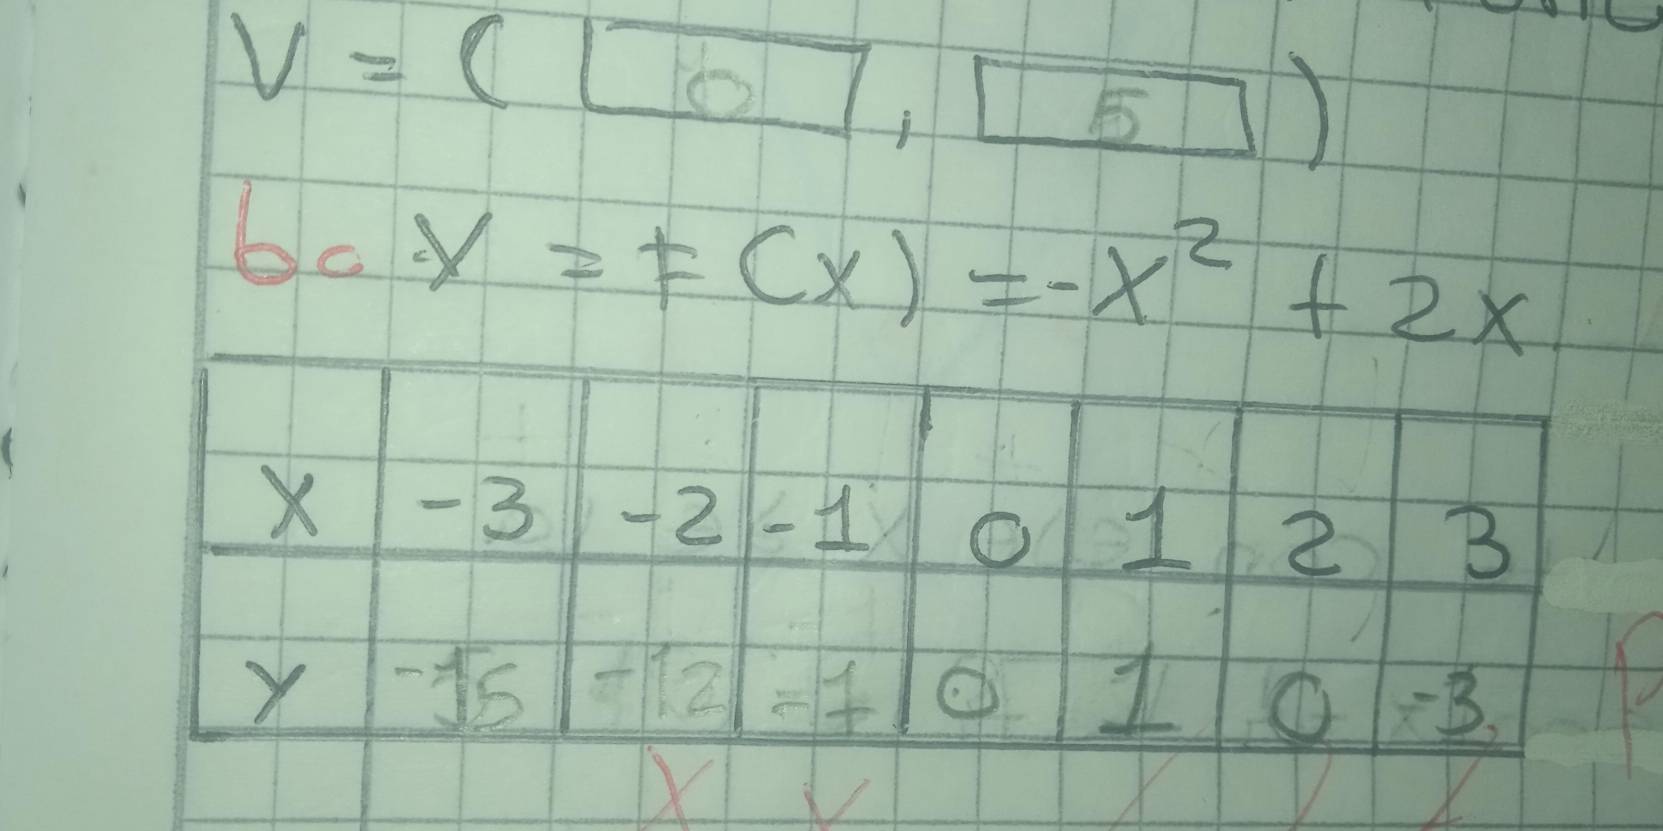 V = ( 0 , 5 )
bc Y = F(x) = -x² + 2x
X -3 -2 -1 0 1 2 3
Y -15 -12 -1 0 1 0 -3